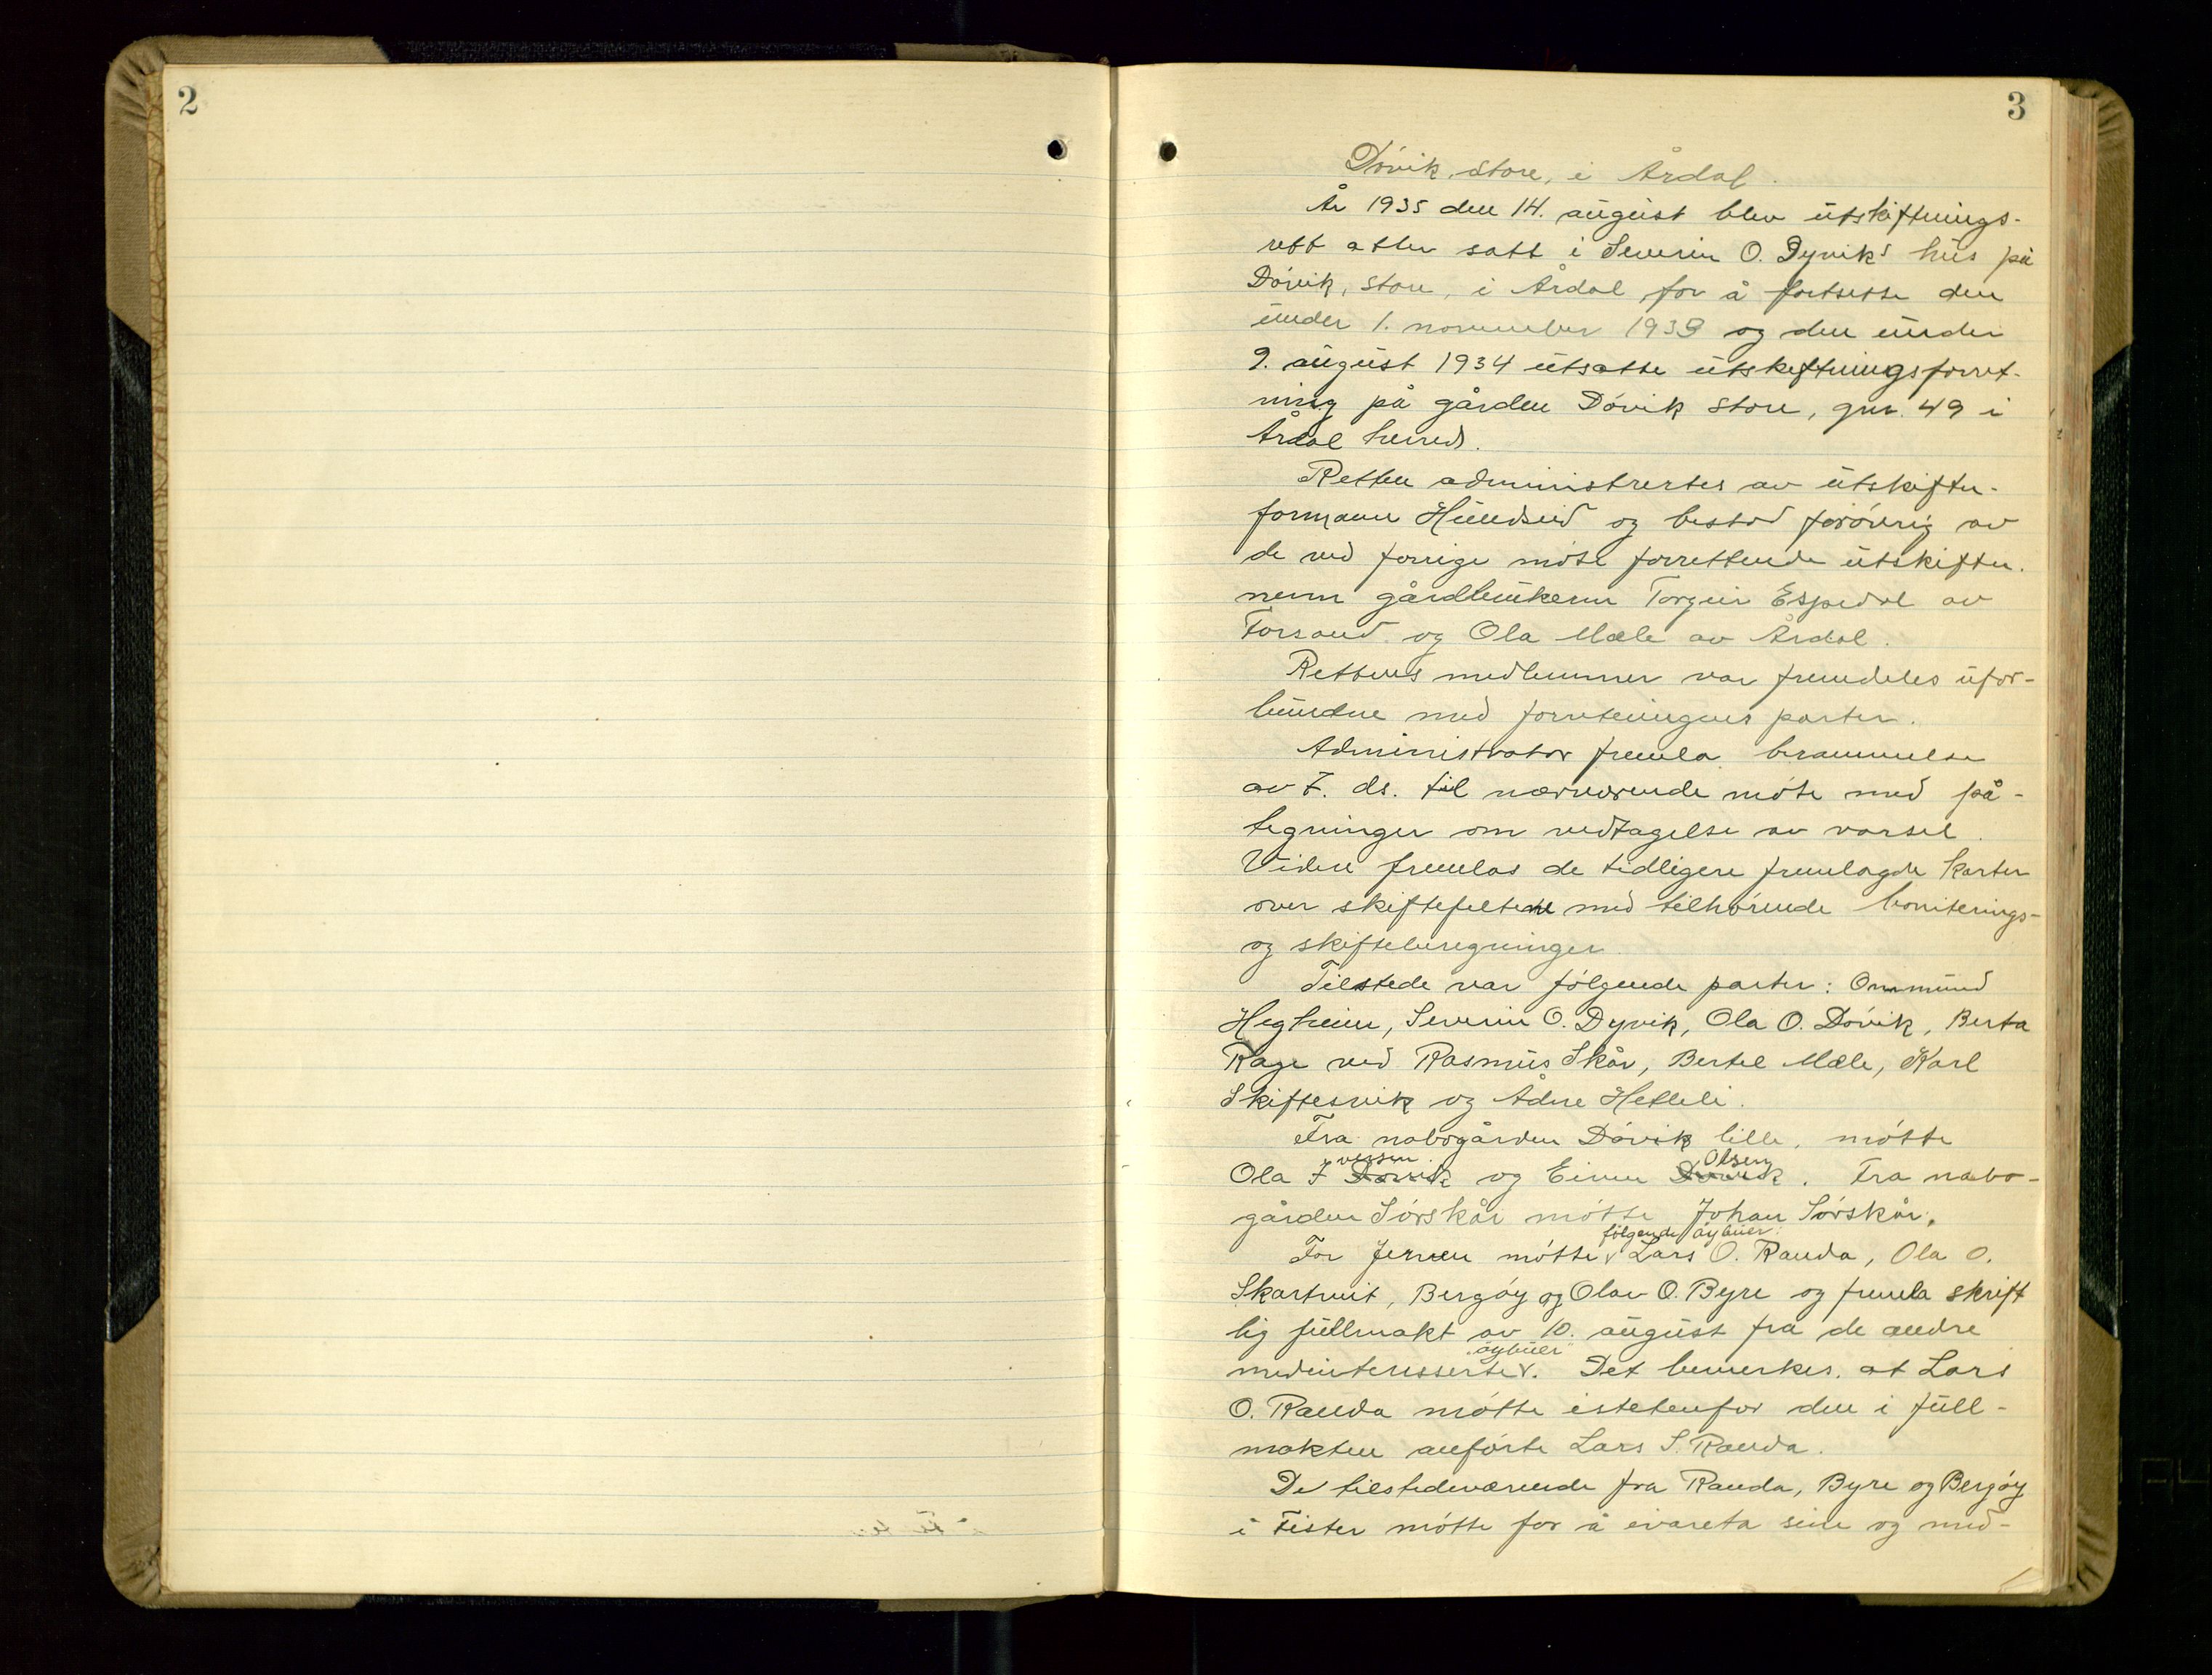 2
3
Dövik, store, i Årdal.
År 1935 den 14. august blev utskiftnings-
rett atter satt i Severin O. Dyviks hus på
Dövik, store, i Årdal for å fortsette den
under 1. november 1933 og den under
9. august 1934 utsatte utskiftningsforret-
ning på gården Dövik store, gnr. 49 i
Årdal herred.
Retten administrertes av utskiftn.
formann Hundseid og bestod forövrig av
de ved forrige möte forrettende utskiftn.
menn gårdbrukerne Torgeir Espedal av
Forsand og Ola Mæle av Årdal.
Rettens medlemmer var fremdeles ufor-
bundne med forretningens parter.
Administrator fremla berammelse
av 7. ds. til nærværende möte med på-
tegninger om vedtagelse av varsel.
Videre fremlas de tidligere fremlagde karter
over skiftefeltene med tilhörende boniterings-
og skifteberegninger.
Tilstede var fölgende parter: Ommund
Hegheim, Severin O. Dyvik, Ola O. Dövik, Berta
Rage ved Rasmus Skår, Bertel Mæle, Karl
Skiftesvik og Ådne Hetleli.
Fra nabogården Dövik lille, mötte
vessen Olsen
Ola I Dövik og Einen Dövik. Fra nabo-
gården Sörskår mötte Johan Sörskår.
fölgende öybuer
For mötte Lars O. Randa, Ola O.
Skartveit, Bergöy og Olav O. Byre og fremla skrift
lig fullmakt av 10. august fra de andre
öybuer
medinteresserte. Det bemerkes, at Lars
O. Randa mötte istetenfor den i full-
makten anförte Lars S. Randa.
De tilstedeværende fra Randa, Byre og Bergöy
i Fister mötte for å ivareta sine og med-